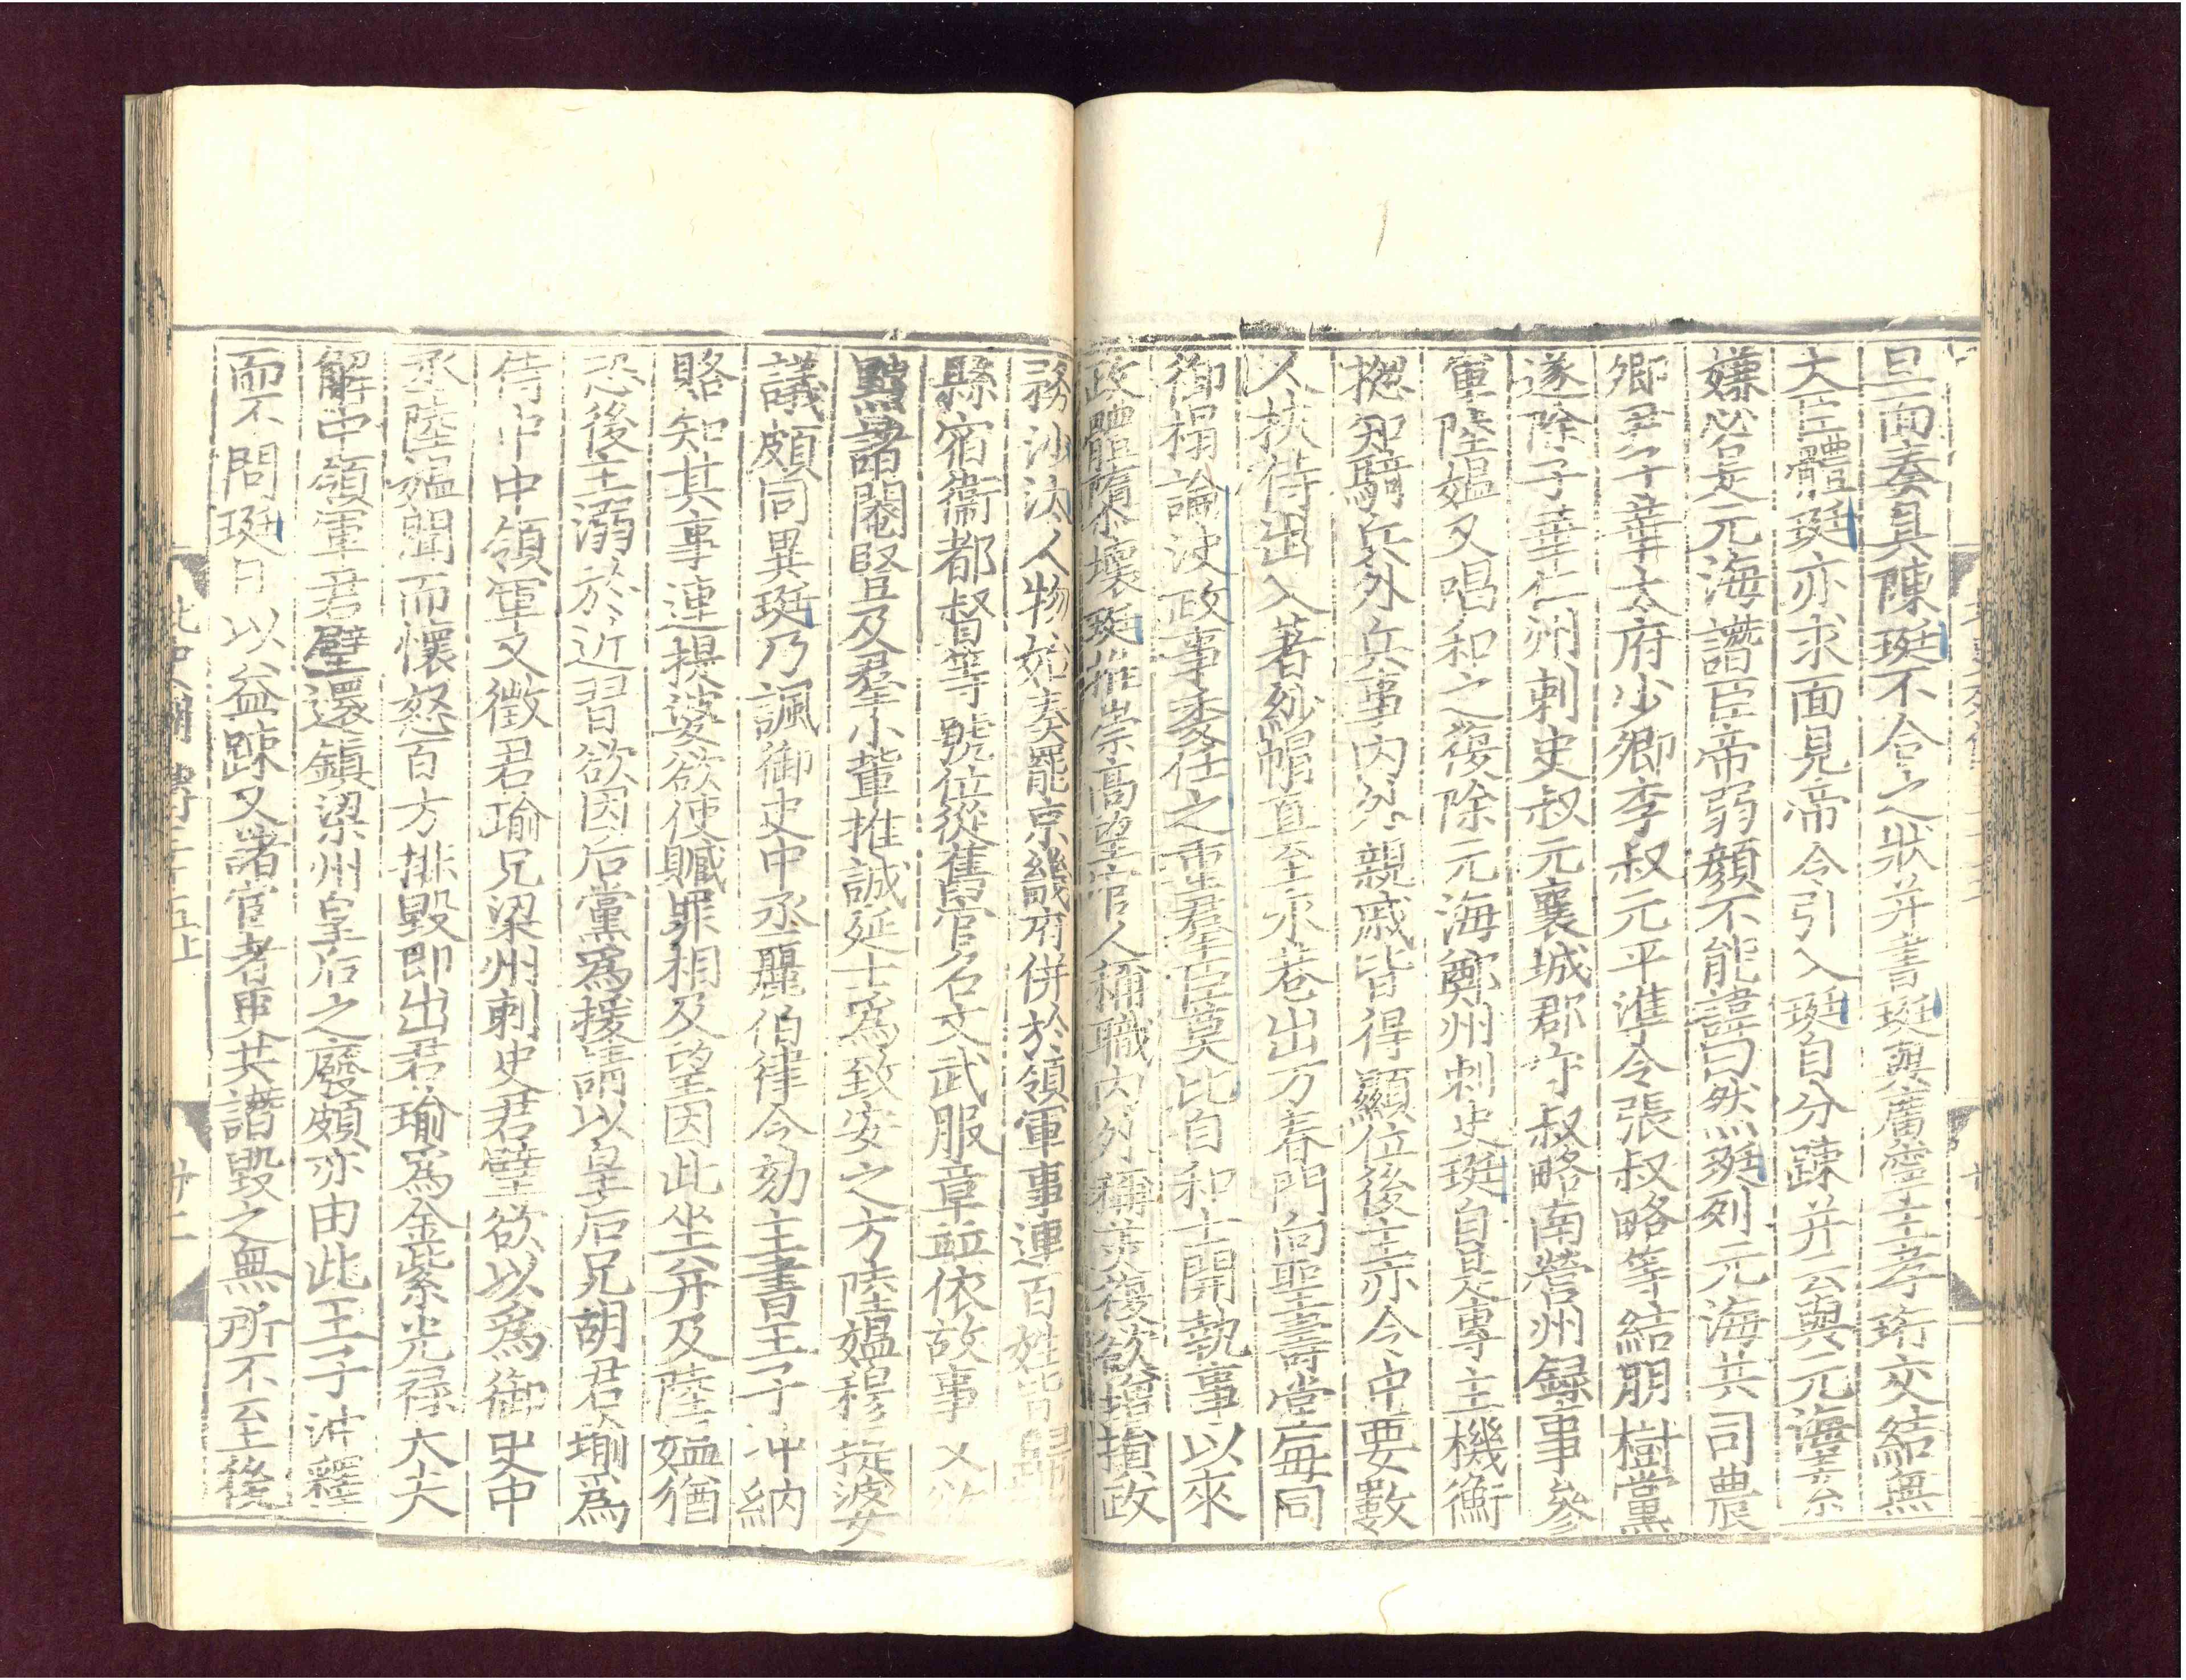 旦面奏具陳珽不合之狀并書珽與廣寧王孝珩交結無
大臣體珽亦求面見帝令引入珽自分疎并云與元海素
嫌必是元海譖臣帝弱顔不能諱曰然珽列元海共司農
卿尹子華太府少卿李叔元平準令張叔略等結朋樹黨
遂除子華仁州刺史叔元襄城郡守叔略南營州録事參
軍陸媪又唱和之復除元海鄭州刺史珽自是專主機衡
揔知騎兵外兵事内外親戚皆得顯位後主亦令中要數
人扶侍出入著紗帽直至永巷出万春門向聖壽堂毎同
御榻論決政事委任之重羣臣莫比自和士開執事以來
政體隳壞珽推崇高望官人稱職内外稱美復欲增損政
務沙汰人物始奏罷京畿府併於領軍事連百姓皆歸
縣宿衞都督等號位從舊官名文武服章並依故事又欲
黜諸閹竪及羣小輩推誠延士爲致安之方陸媪穆提婆
議頗同異珽乃諷御史中丞麗伯律令劾主書王子冲納
賂知其事連提婆欲使贓罪相及望因此坐并及陸媪猶
恐後主溺於近習欲因后黨爲援請以皇后兄胡君瑜爲
侍中中領軍又徵君瑜兄梁州刺史君璧欲以爲御史中
丞陸媪聞而懷怒百方排毀即出君瑜爲金紫光禄大夫
解中領軍君璧還鎮梁州皇后之廢頗亦由此王子冲釋
而不問珽日以益疎又諸宦者更共譖毀之無所不至後
北史列傳三十五上
廿二